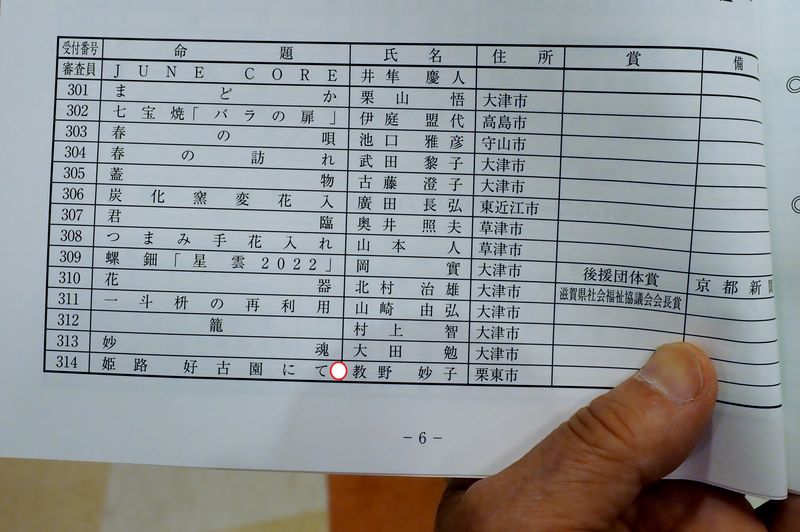 受付番号 命題 氏名 住所 賞 備
審査員 JUNE CORE 井隼慶人
301 まどか 栗山悟 大津市
302 七宝焼「バラの扉」 伊庭盟代 高島市
303 春の唄 池口雅彦 守山市
304 春の訪れ 武田黎子 大津市
305 蓋物 古藤澄子 大津市
306 炭化窯変花入 廣田長弘 東近江市
307 君臨 奥井照夫 草津市
308 つまみ手花入れ 山本人 草津市
309 螺鈿「星雲2022」 岡實 大津市 後援団体賞 京都新
310 花器 北村治雄 大津市 滋賀県社会福祉協議会会長賞
311 一斗枡の再利用 山崎由弘 大津市
312 籠 村上智 大津市
313 妙魂 大田勉 大津市
314 姫路好古園にて 教野妙子 栗東市
-6-